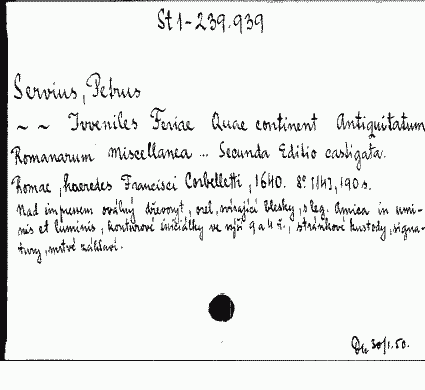 St 1-239.939
Servius, Petrus
~ ~ Iuveniles Feriae Quae continent Antiquitatum
Romanarum Miscellanea ... Secunda Editio castigata.
Romae, haeredes Francisci Corbelletti, 1640. 8°. [14], 190 s.
Nad impressem oválný dřevoryt, orel, svírající blesky, s leg. Amica in numi-
nis et luminis, konturové iniciálky ve výši 9 a 4 ř., stránkové kustody, signa-
tury, mrtvé záhlaví.
30/1.50.